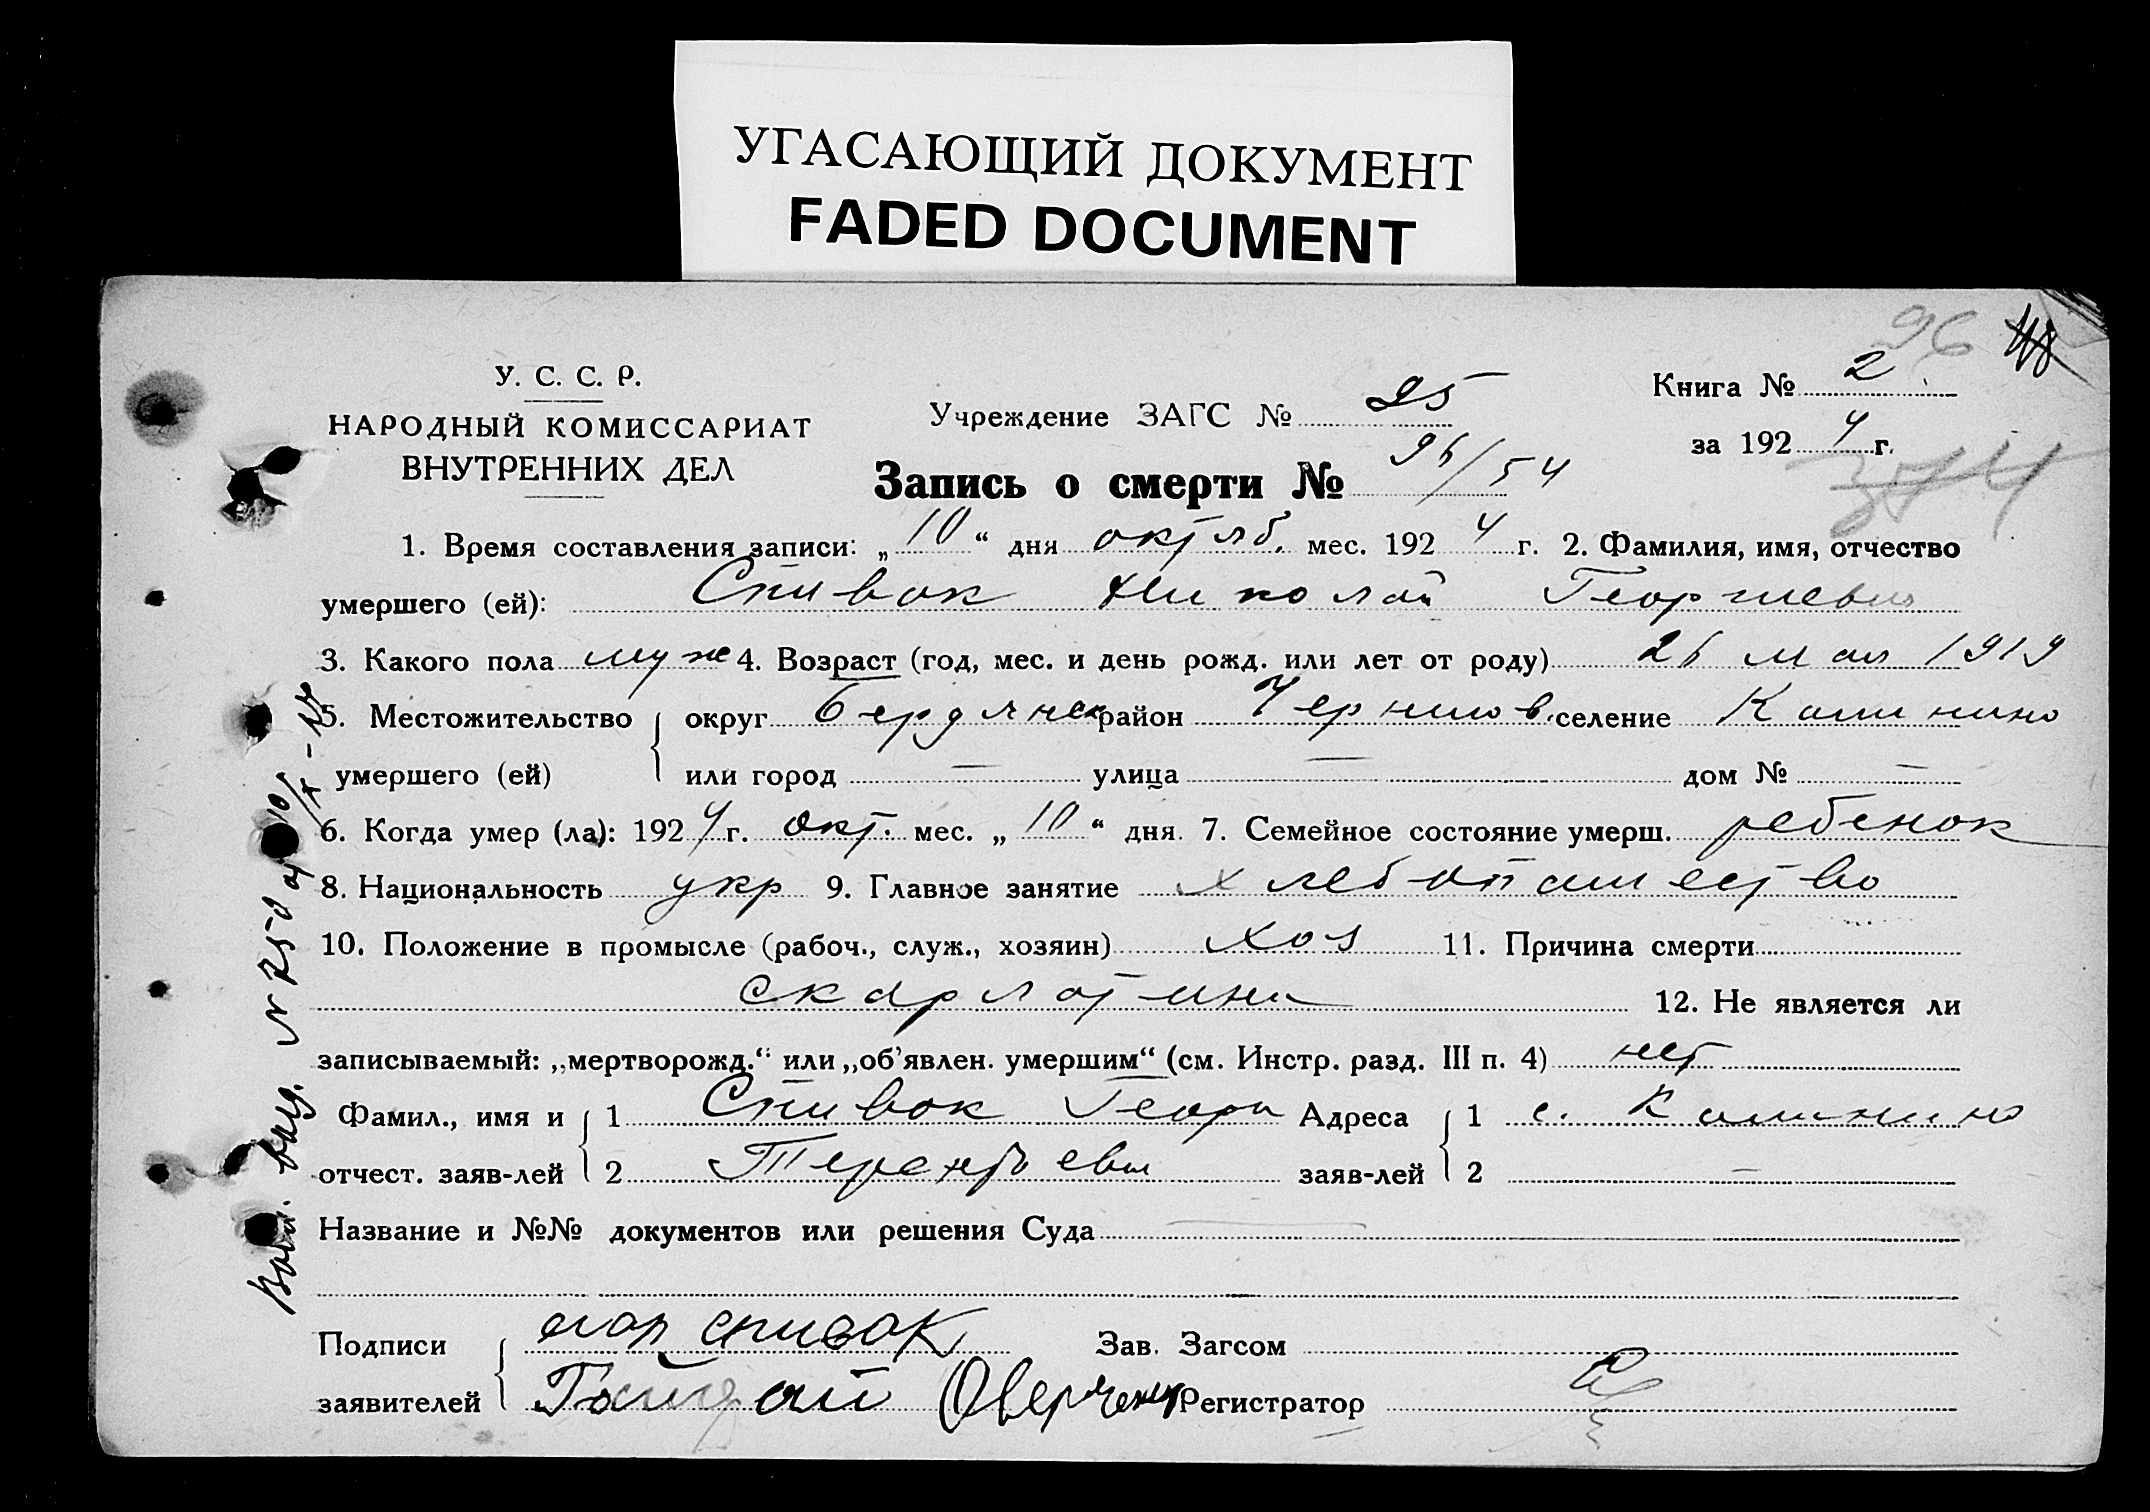 УГАСАЮЩИЙ ДОКУМЕНТ
FADED DOCUMENT
96
У. С. С. Р.
НАРОДНЫЙ КОМИССАРИАТ
ВНУТРЕННИХ ДЕЛ
Учреждение ЗАГС № 25
Книга № 2
за 1924 г.
374
Запись о смерти № 96/54
1. Время составления записи: „10“ дня октяб. мес. 1924 г. 2. Фамилия, имя, отчество
умершего (ей): Спивак Николай Георгиевич
3. Какого пола муж 4. Возраст (год, мес. и день рожд. или лет от роду) 26 мая 1919
5. Местожительство округ Бердянск район Чернигов. селение Калинино
умершего (ей) или город — улица — дом № —
6. Когда умер (ла): 1924 г. окт. мес. „10“ дня. 7. Семейное состояние умерш. ребенок
8. Национальность укр 9. Главное занятие хлебопашество
10. Положение в промысле (рабоч., служ., хозяин) хоз 11. Причина смерти
скарлатина 12. Не является ли
записываемый: „мертворожд.“ или „об'явлен. умершим“ (см. Инстр. разд. III п. 4) нет
Фамил., имя и 1 Спивак Георги Адреса 1 с. Калинино
отчест. заяв-лей 2 Терентьевич заяв-лей 2 —
Название и №№ документов или решения Суда —
Подписи егор спивак Зав. Загсом
заявителей Гайдай Регистратор